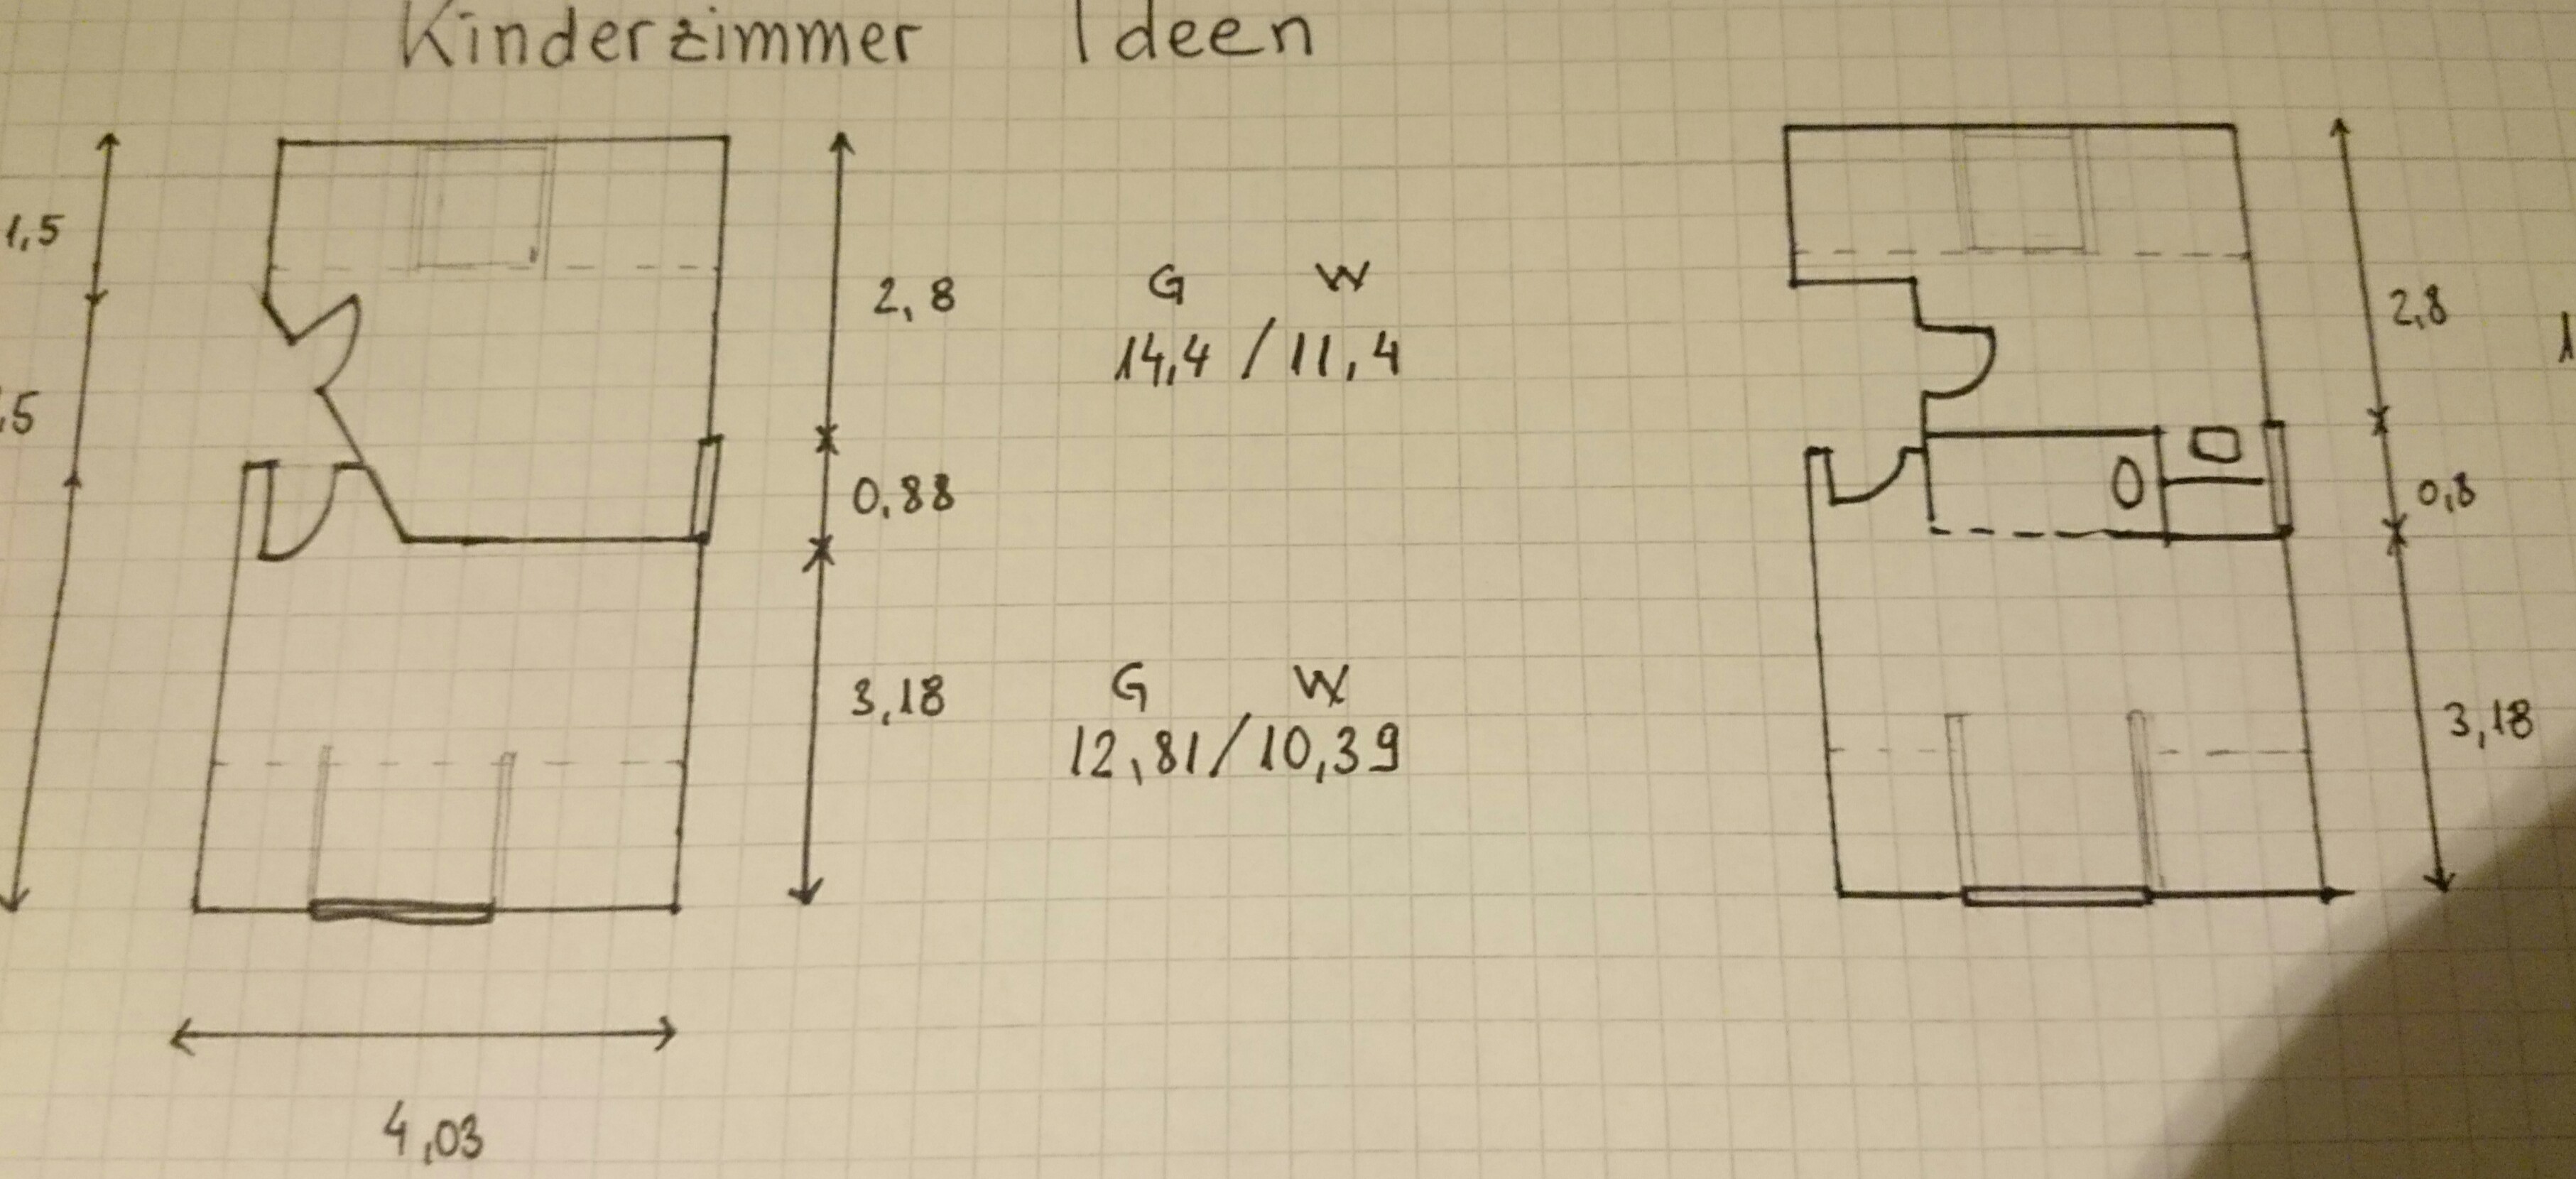 Kinderzimmer Ideen
1,5
2,8
G W
14,4 / 11,4
,5
0,88
3,18
G W
12,81/10,39
4,03
2,8
0,8
3,18